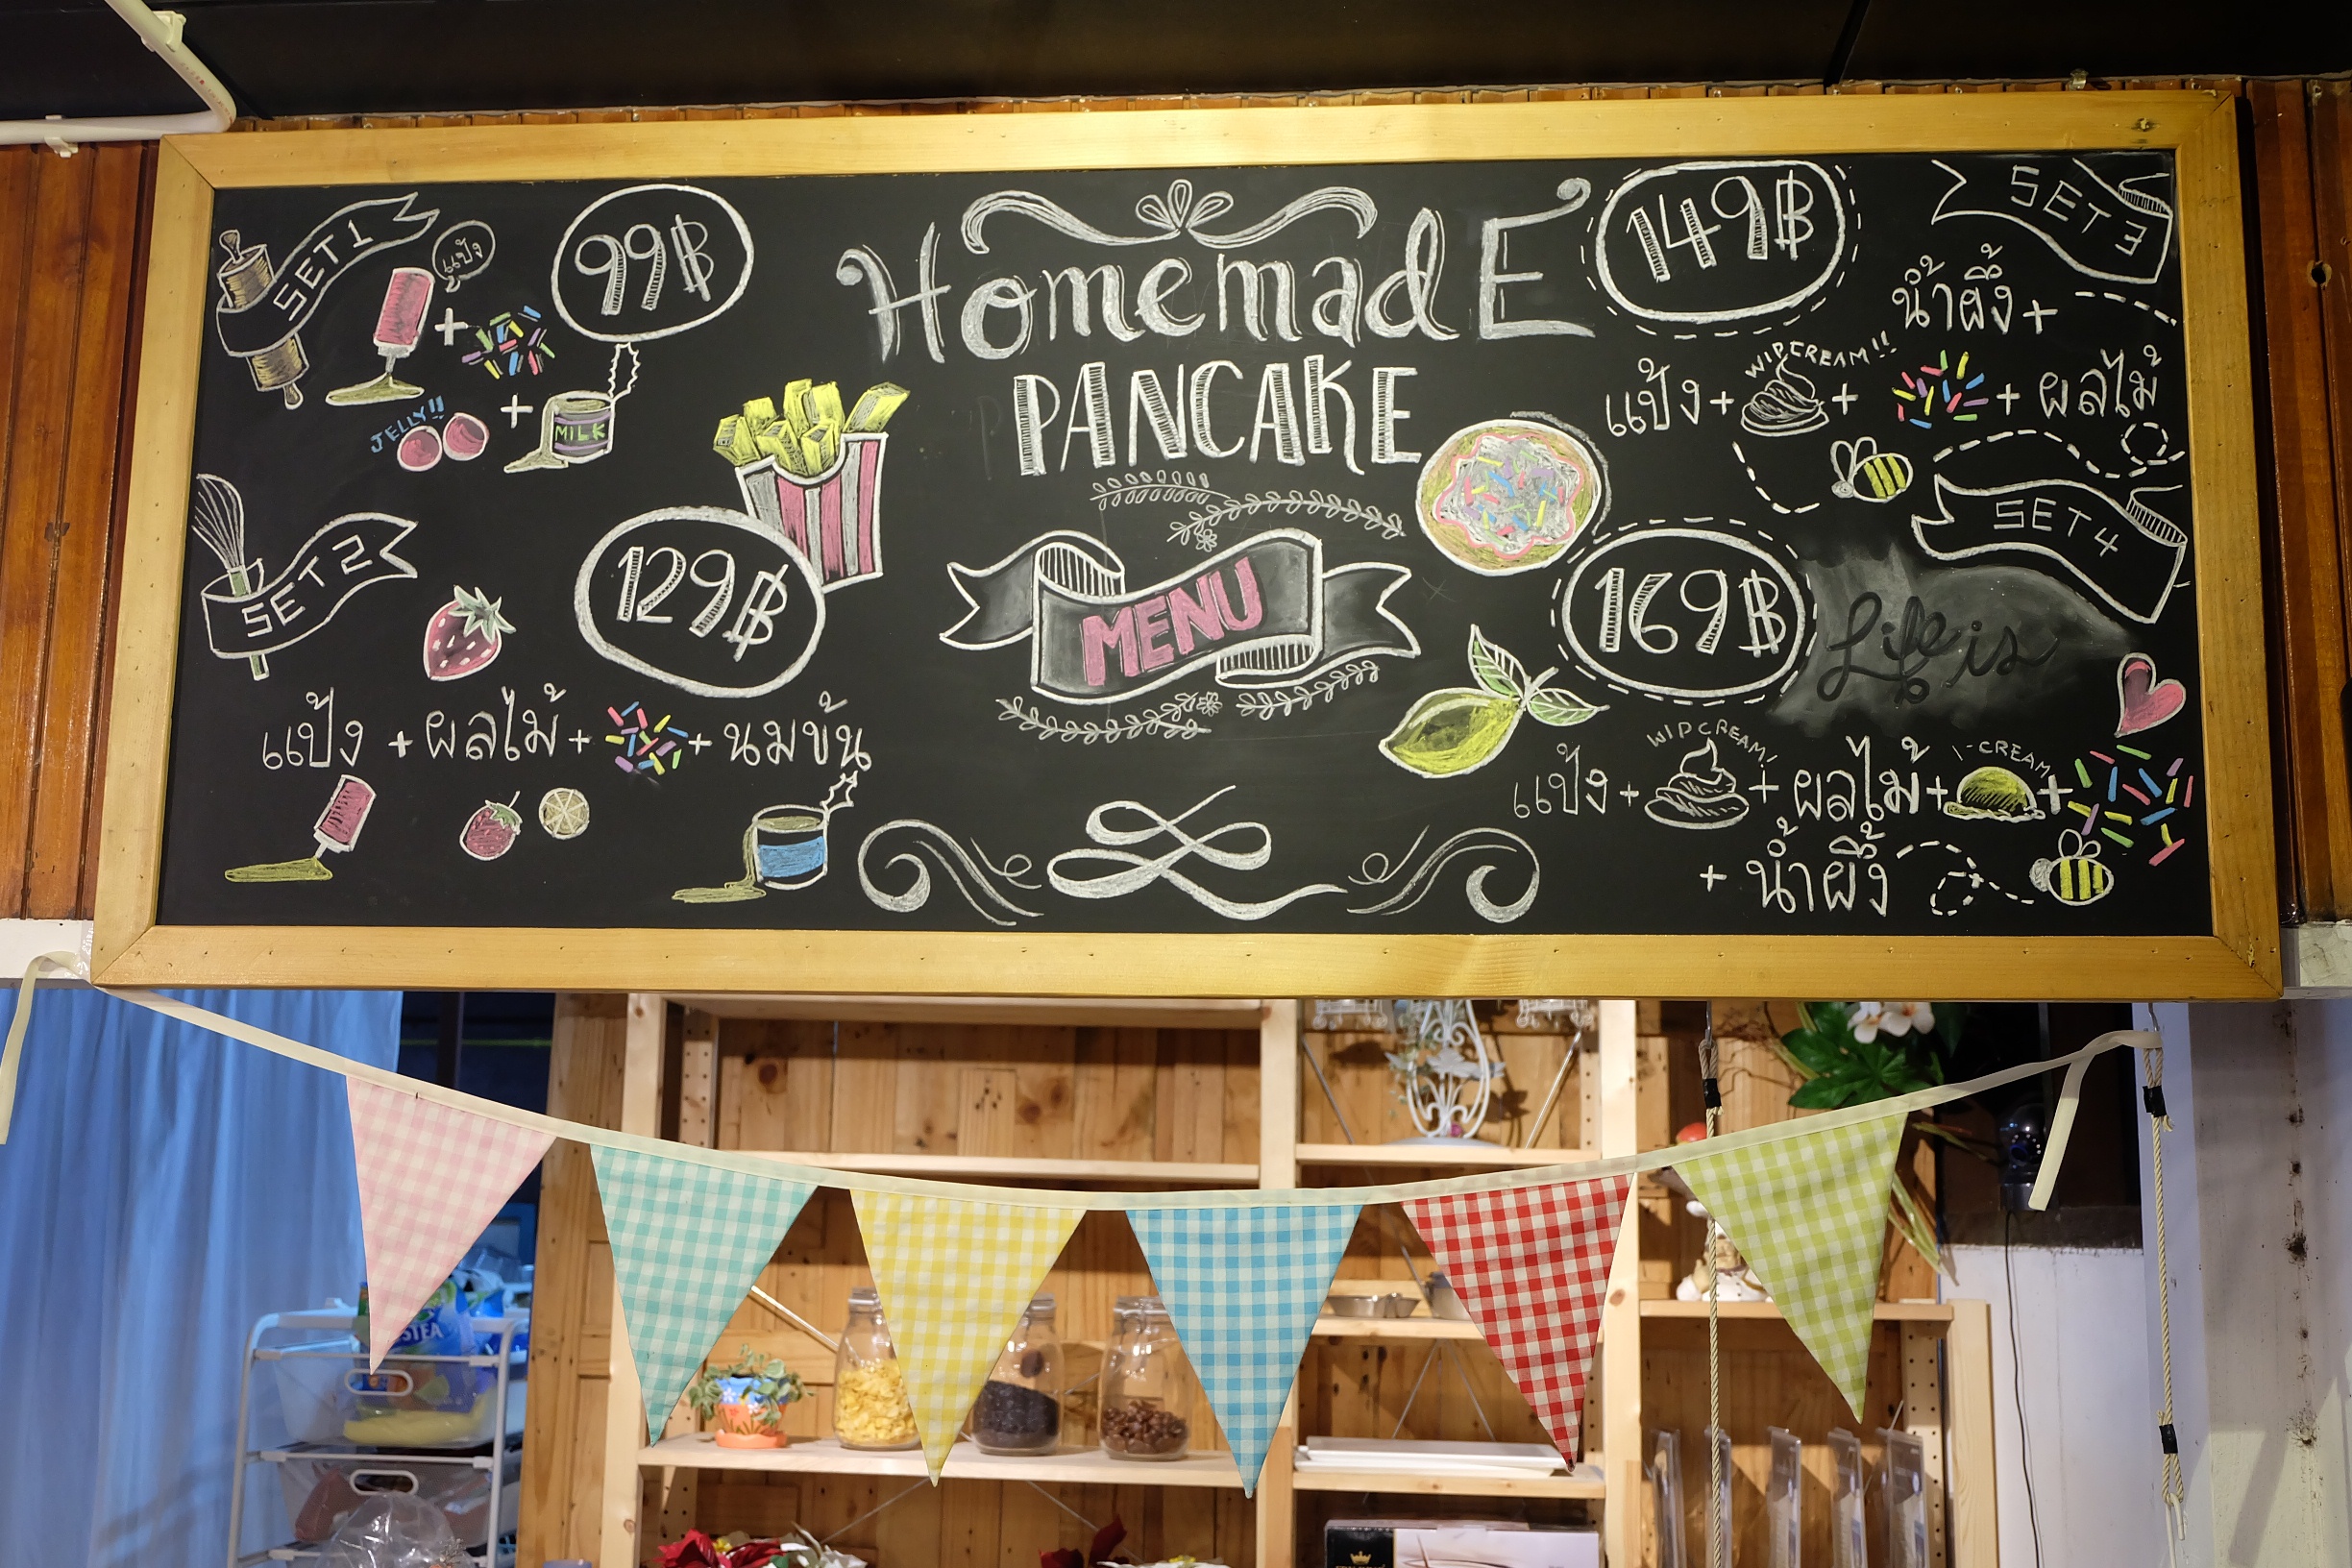 SET 1
แป้ง
+
99฿
JELLY!!
+
MILK
SET 2
129฿
แป้ง + ผลไม้ + + นมข้น
HomemadE
PANCAKE
MENU
149฿
SET 3
น้ำผึ้ง +
WIPCREAM!!
แป้ง + + + ผลไม้
SET 4
169฿
Life is
WIPCREAM!
I-CREAM
แป้ง + + ผลไม้ + +
+ น้ำผึ้ง